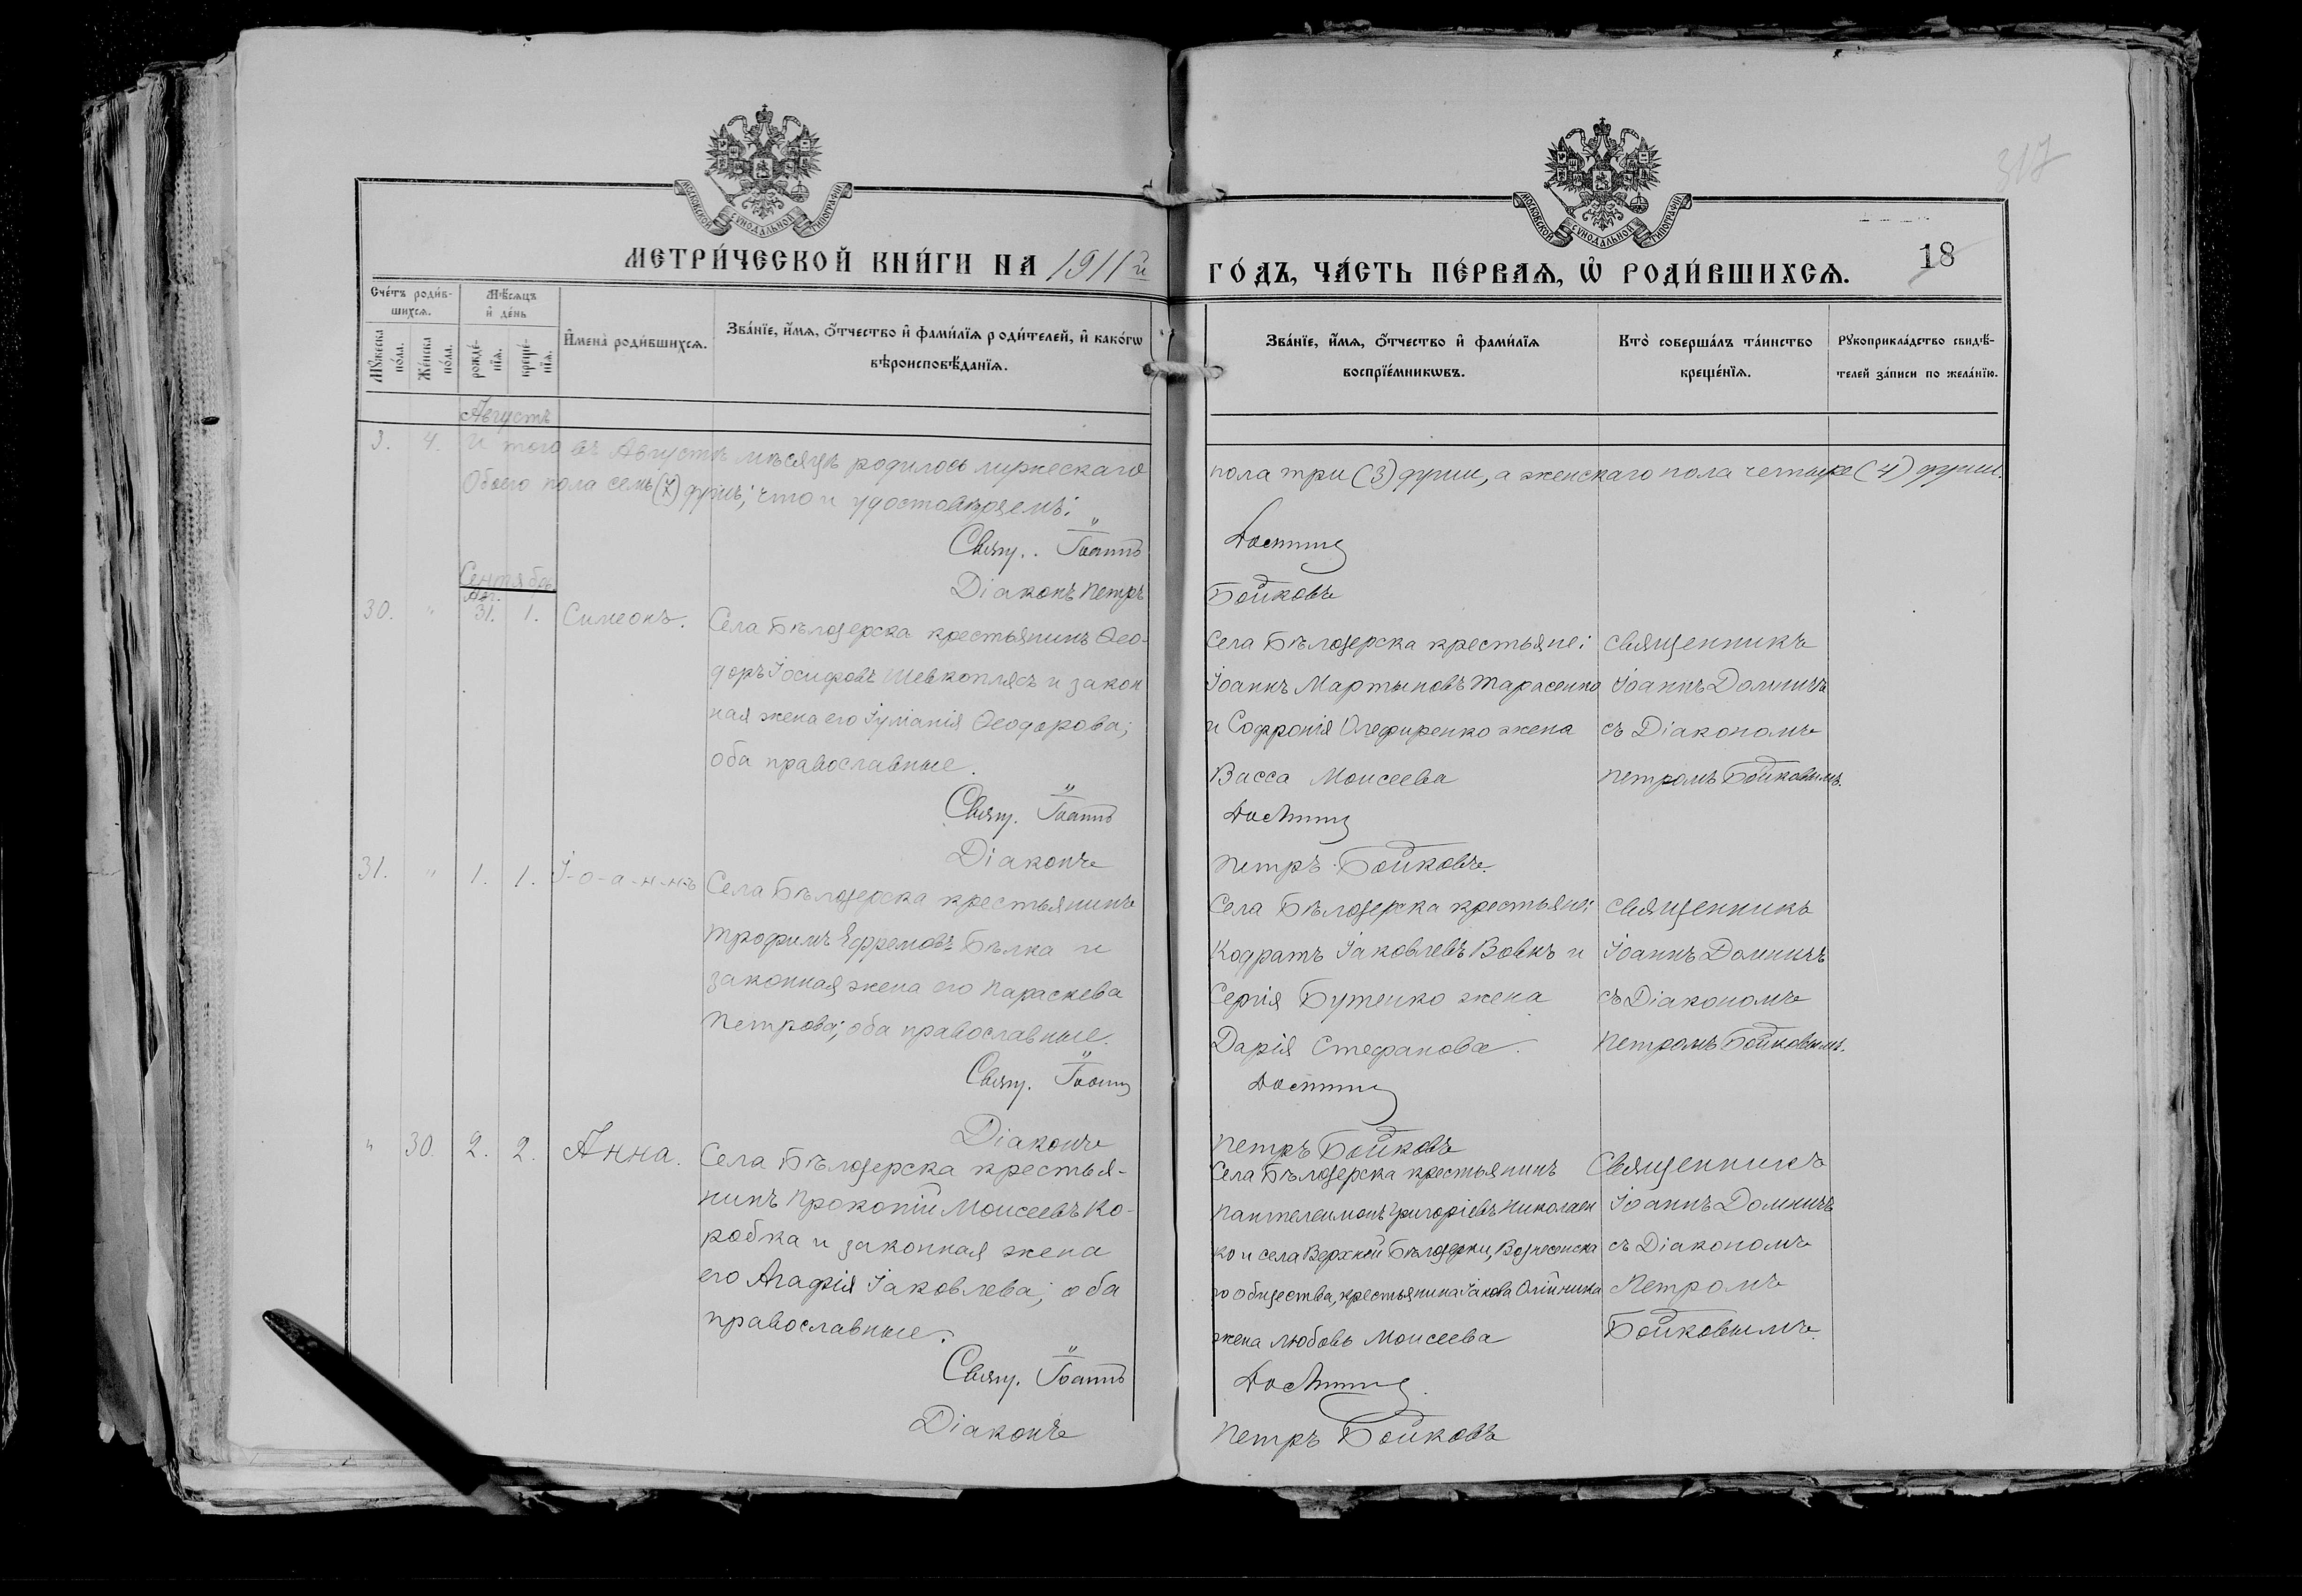 317
МОСКОВСКОЙ СѴНОДАЛЬНОЙ ТИПОГРАФІИ
МОСКОВСКОЙ СѴНОДАЛЬНОЙ ТИПОГРАФІИ
18
МЕТРИ́ЧЕСКОЙ КНИ́ГИ НА 1911й
ГО́ДЪ, ЧА́СТЬ ПЕ́РВАѦ, Ѡ҆ РОДИ́ВШИХСѦ.
Сче́тъ роди́в-
шихсѧ.
Мꙋжеска
по́ла.
Же́нска
по́ла.
Мѣ́сѧцъ
и҆ де́нь
рожде́-
нїѧ.
креще́-
нїѧ.
И҆мена̀ роди́вшихсѧ.
Зва́нїе, и҆́мѧ, ѻ҆́тчество и҆ фами́лїѧ роди́телей, и҆ како́гѡ
вѣроисповѣ́данїѧ.
Зва́нїе, и҆́мѧ, ѻ҆́тчество и҆ фами́лїѧ
воспрїе́мникѡвъ.
Кто̀ соверша́лъ та́инство
креще́нїѧ.
Рꙋкоприкла́дство свидѣ́-
телей за́писи по жела́нїю.
Августъ
3. 4. И того въ Августѣ мѣсяцѣ родилось мужескаго
пола три (3) души, а женскаго пола четыре (4) души.
Обоего пола семь (7) душъ; что и удостовѣряемъ:
Свящ. Іоаннъ
Діаконъ Петръ
Бойковъ
Сентябрь
Авг.
30. " 31. 1. Симеонъ.
Села Бѣлозерска крестьянинъ Ѳео-
доръ Іосифовъ Шевкоплясъ и закон
ная жена его Іуліанія Ѳеодорова;
оба православные.
Свящ. Іоаннъ
Діаконъ
Села Бѣлозерска крестьяне:
Іоаннъ Мартыновъ Тарасенко
и Софронія Олефиренко жена
Васса Моисеева
Петръ Бойковъ.
Священникъ
Іоаннъ Домничъ
съ Діакономъ
Петромъ Бойковымъ.
31. " 1. 1. І-о-а-н-нъ
Села Бѣлозерска крестьянинъ
Трофимъ Ефремовъ Бѣлка и
законная жена его Параскева
Петрова; оба православные.
Свящ. Іоаннъ
Діаконъ
Села Бѣлозерска крестьяне:
Кодратъ Іаковлевъ Вовкъ и
Сергія Бутенко жена
Дарія Стефанова.
Петръ Бойковъ
Священникъ
Іоаннъ Домничъ
съ Діакономъ
Петромъ Бойковымъ.
" 30. 2. 2. Анна.
Села Бѣлозерска крестья-
нинъ Прокопій Моисеевъ Ко-
робка и законная жена
его Агафія Іаковлева; оба
православные.
Свящ. Іоаннъ
Діаконъ
Села Бѣлозерска крестьянинъ
Пантелеимонъ Григоріевъ Николаен
ко и села Верхней Бѣлозерки, Вознесенска
го общества, крестьянина Іакова Олійника
жена Любовь Моисеева
Петръ Бойковъ
Священникъ
Іоаннъ Домничъ
съ Діакономъ
Петромъ
Бойковымъ.